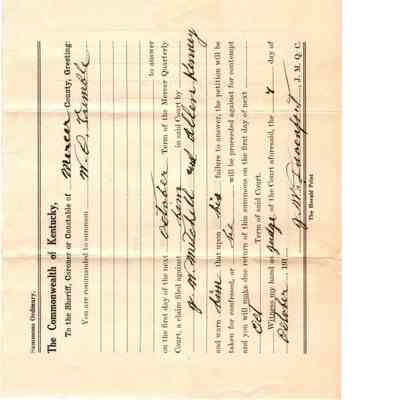 Summons Ordinary.
The Commonwealth of Kentucky,
To the Sheriff, Coroner or Constable of Mercer County, Greeting:
You are commanded to summon W. C. Trimble
to answer
on the first day of the next October Term of the Mercer Quarterly
Court, a claim filed against him in said Court by
J W Mitchell and Allen Kenney
and warn him that upon his failure to answer, the petition will be
taken for confessed, or he will be proceeded against for contempt
and you will make due return of this summons on the first day of next
Oct Term of said Court.
Witness my hand as Judge of the Court aforesaid, the 7 day of
October 191
J. W. Davenport, J. M. Q. C.
The Herald Print